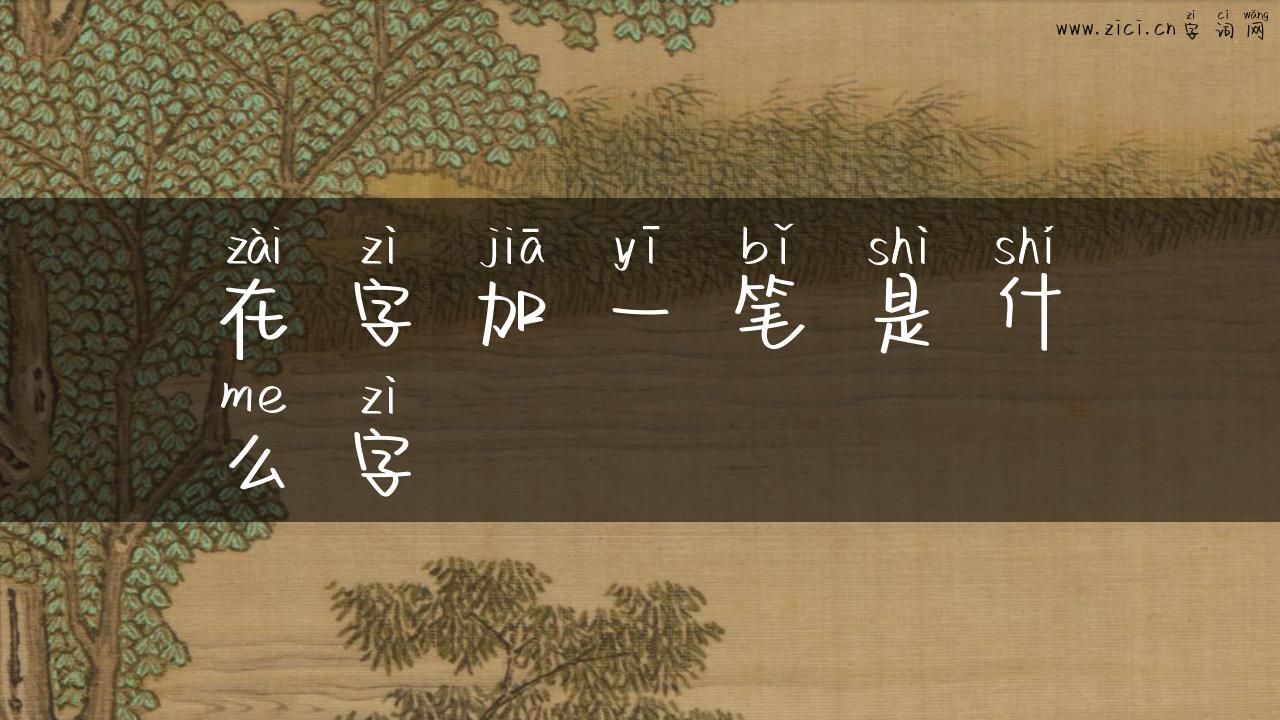 zì cí wǎng
www.zici.cn字词网
zài zì jiā yī bǐ shì shí
在字加一笔是什
me zì
么字